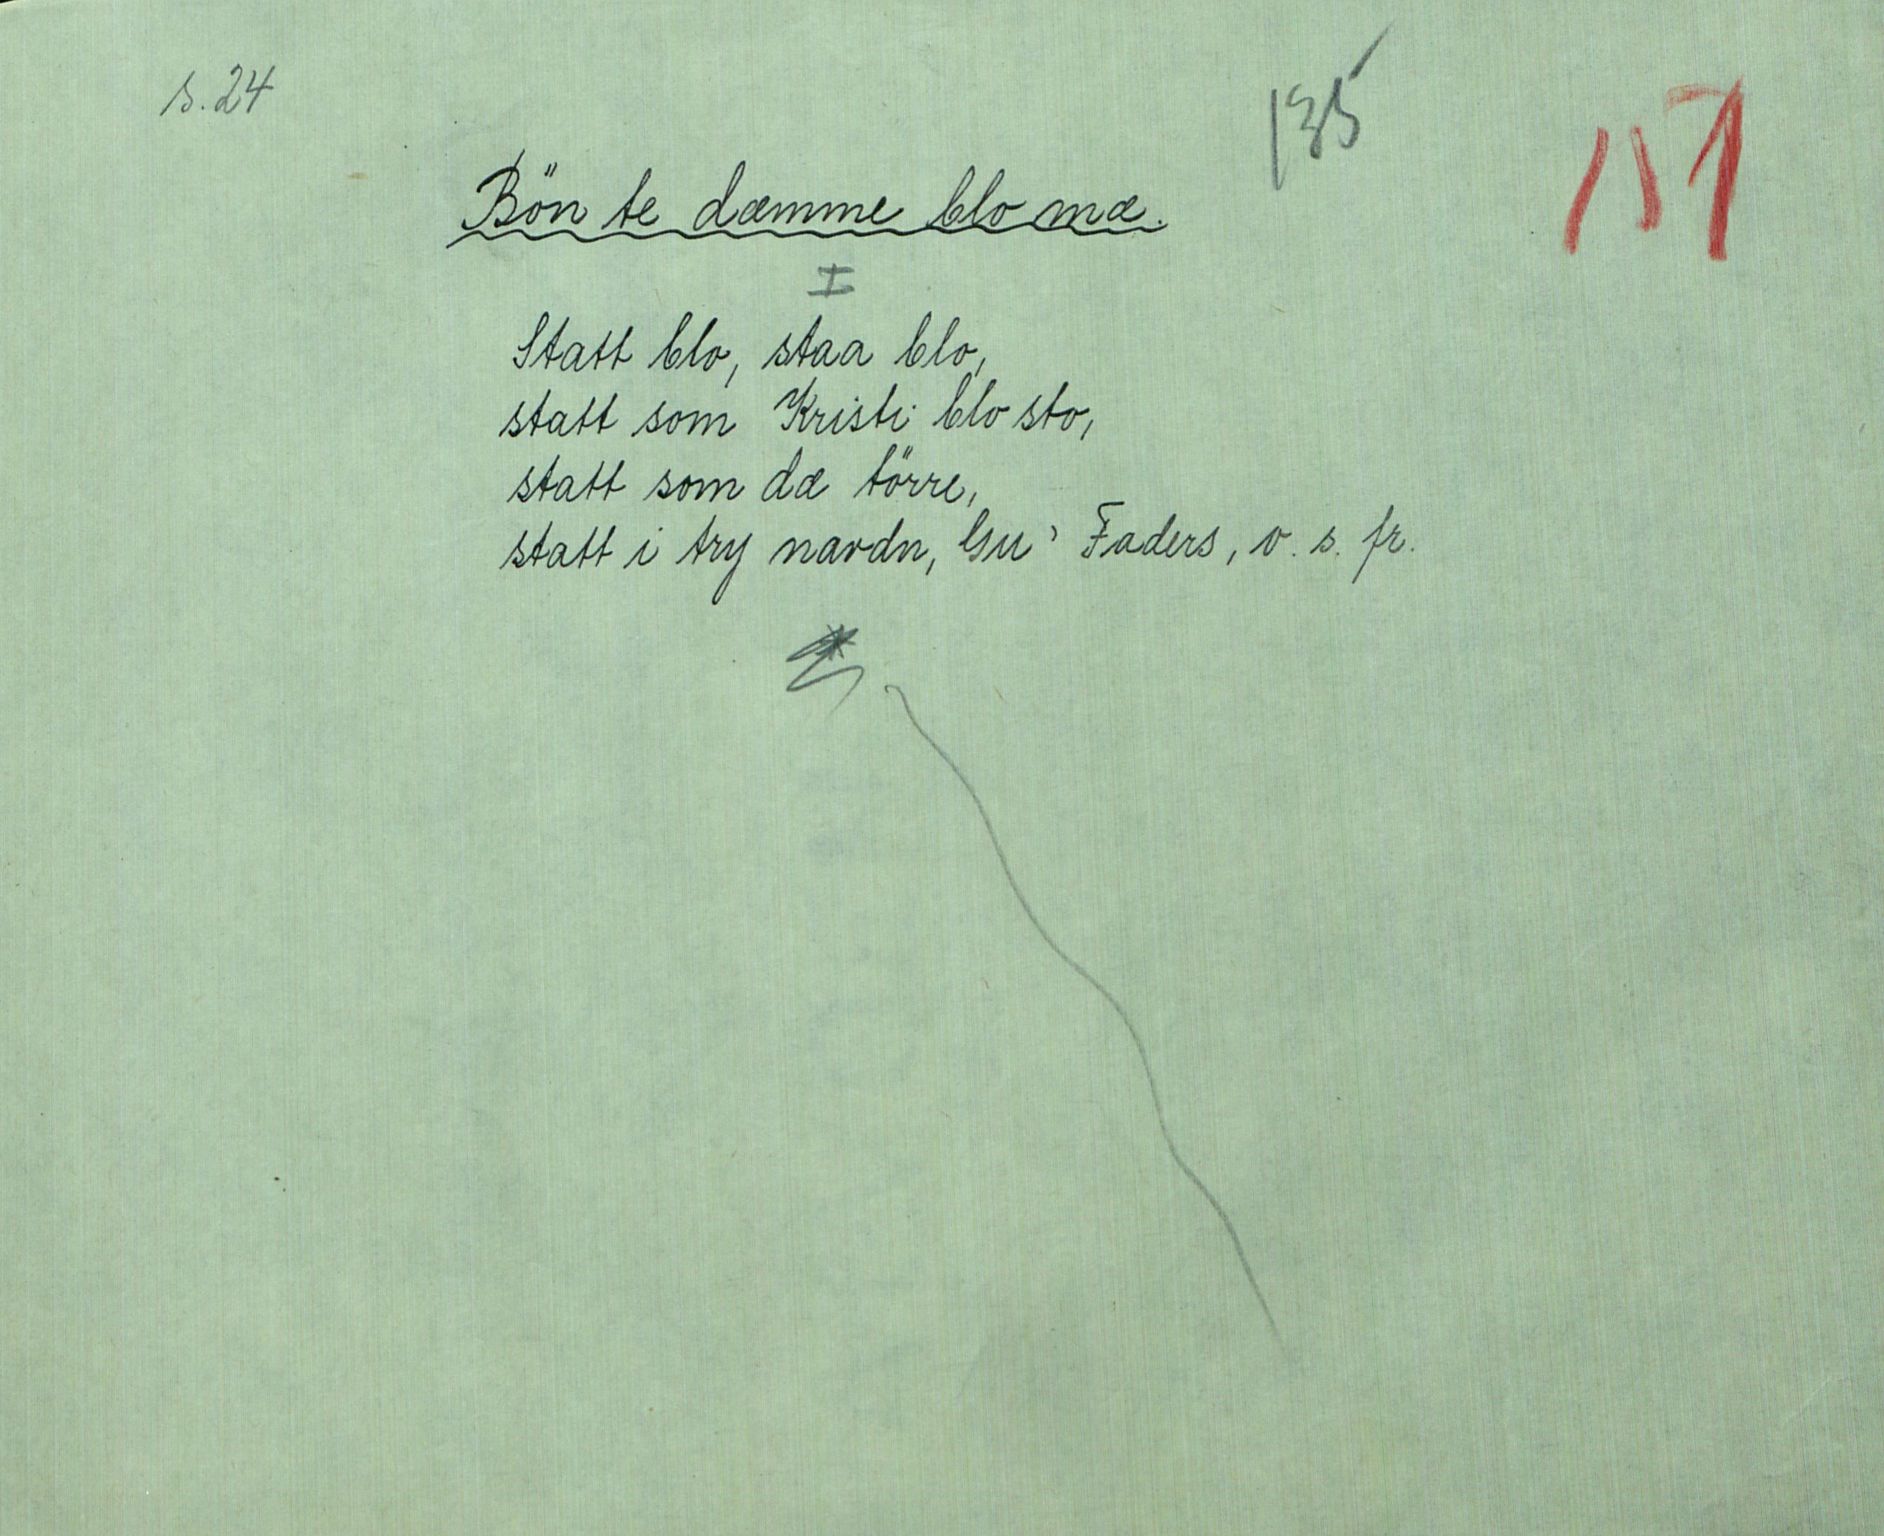 s. 24
135
157
Bön te dæmme blo mæ.
I
Statt blo, staa blo,
statt som Kristi blo sto,
statt som dæ törre,
statt i try navdn, Gu' Faders, o. s. fr.